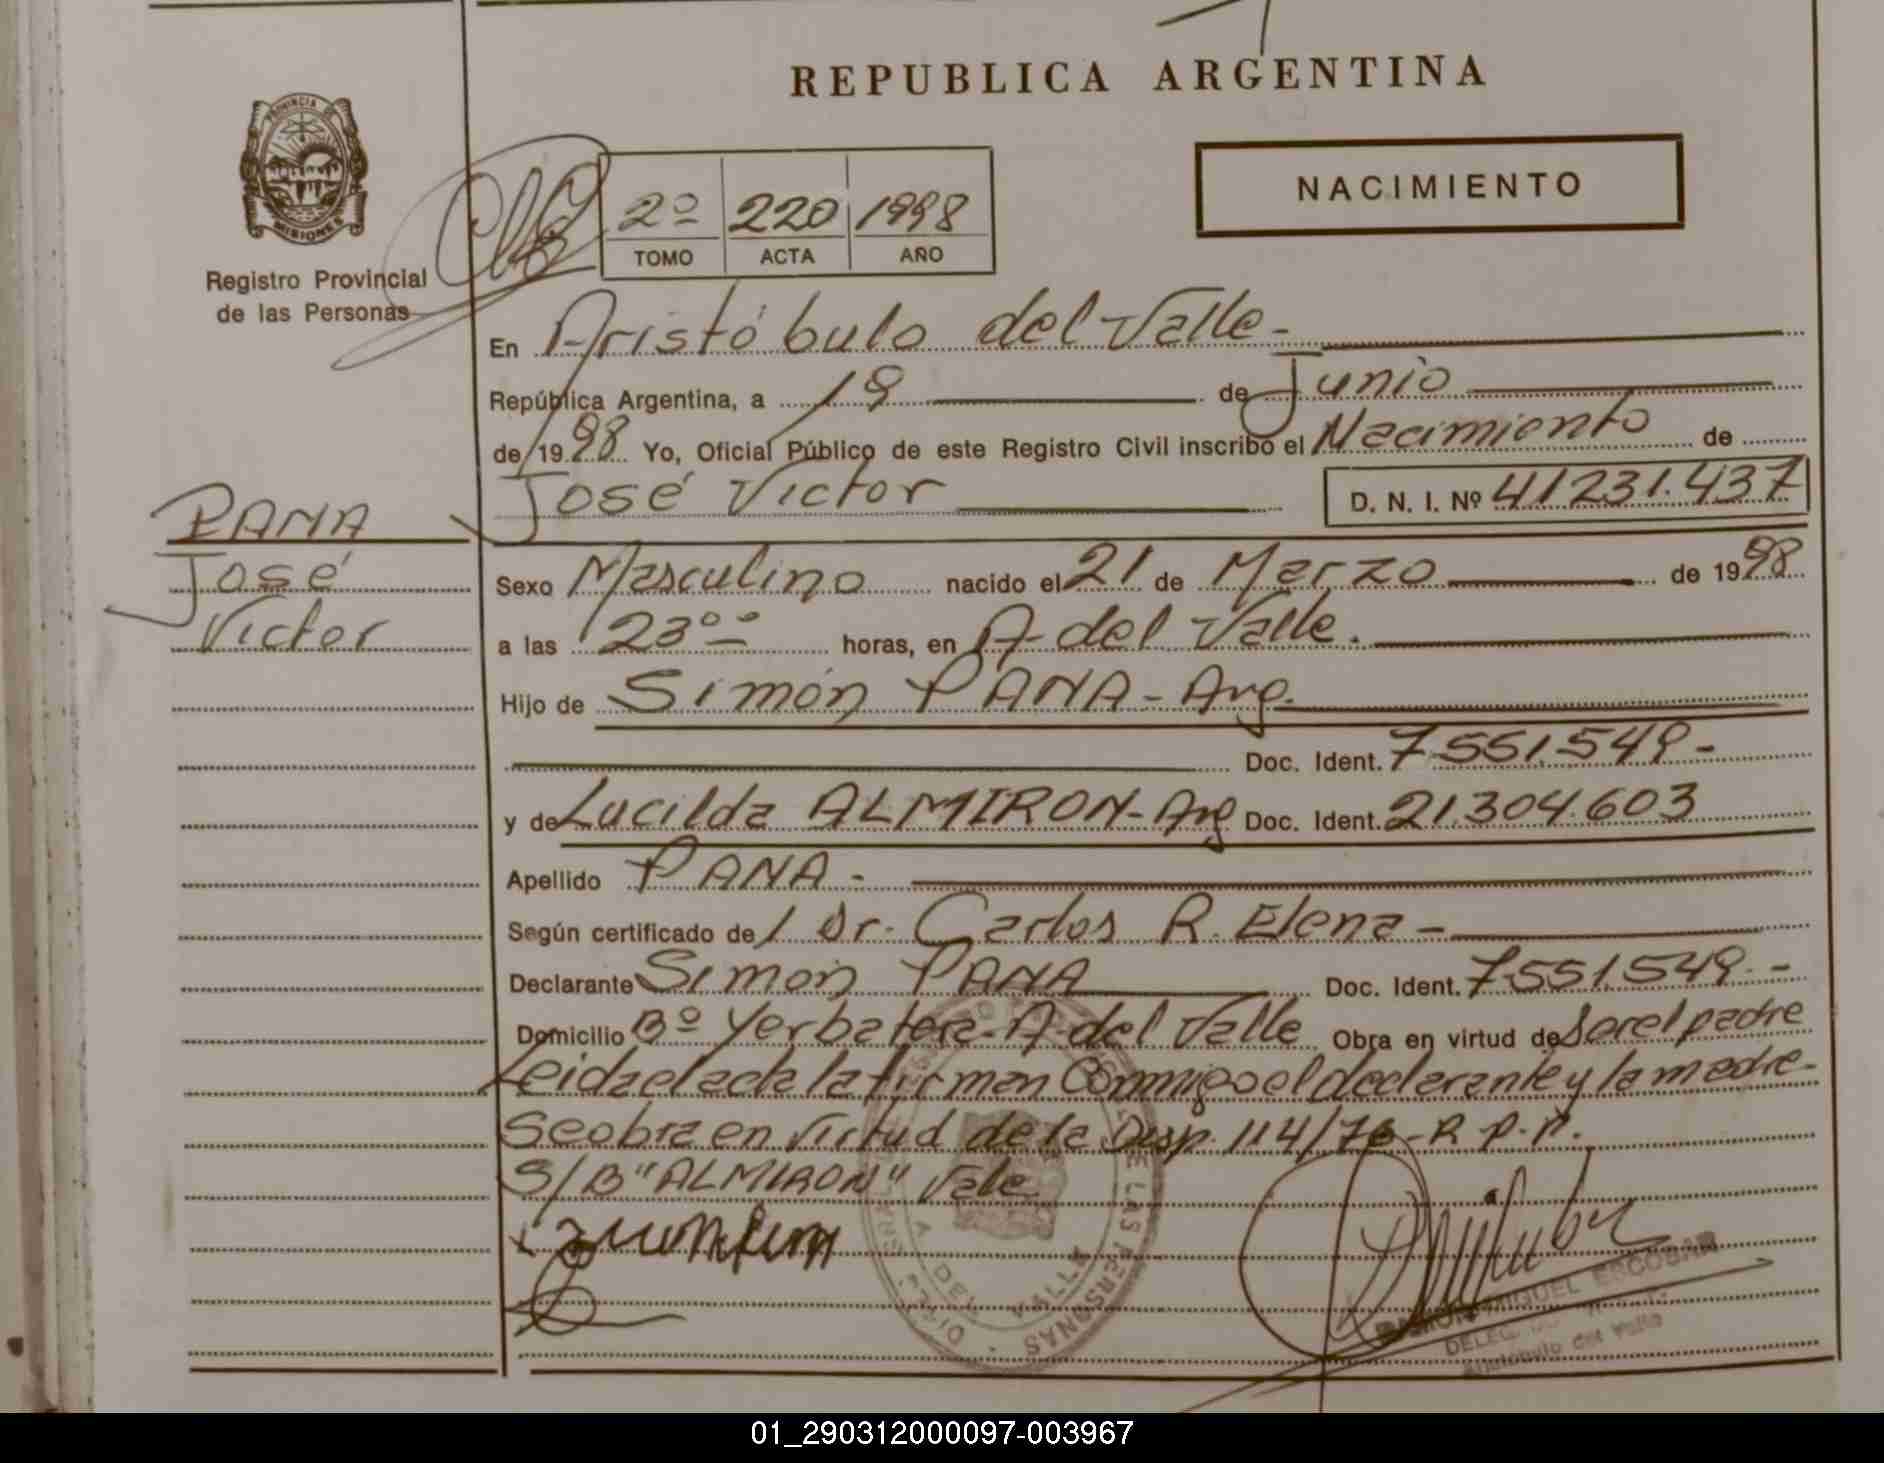 REPUBLICA ARGENTINA
PROVINCIA DE
MISIONES
Registro Provincial
de las Personas
2º 220 1998
TOMO ACTA AÑO
NACIMIENTO
En Aristóbulo del Valle-
República Argentina, a 19 de Junio
de 1998 Yo, Oficial Público de este Registro Civil inscribo el Nacimiento de
José Victor D. N. I. Nº 41231.437
PANA
José
Victor
Sexo Masculino nacido el 21 de Marzo de 1998
a las 23ºº horas, en A- del Valle.
Hijo de Simón PANA- Arg.
Doc. Ident. 7.551.549-
y de Lucilda ALMIRON- Arg Doc. Ident. 21.304.603
Apellido PANA-
Según certificado de / Dr. Carlos R. Elena-
Declarante Simón PANA Doc. Ident. 7.551.549.-
Domicilio Bº Yerbatera- A- del Valle Obra en virtud de Ser el padre
Leida el acta la firman Conmigo el declarante y la madre-
Se obra en Virtud de la Disp. 114/76-R.P.P.
S/B "ALMIRON" Vale
DE LAS PERSONAS
A DEL VALLE
RAMON MIGUEL ESCOBAR
Aristobulo del Valle
01_290312000097-003967